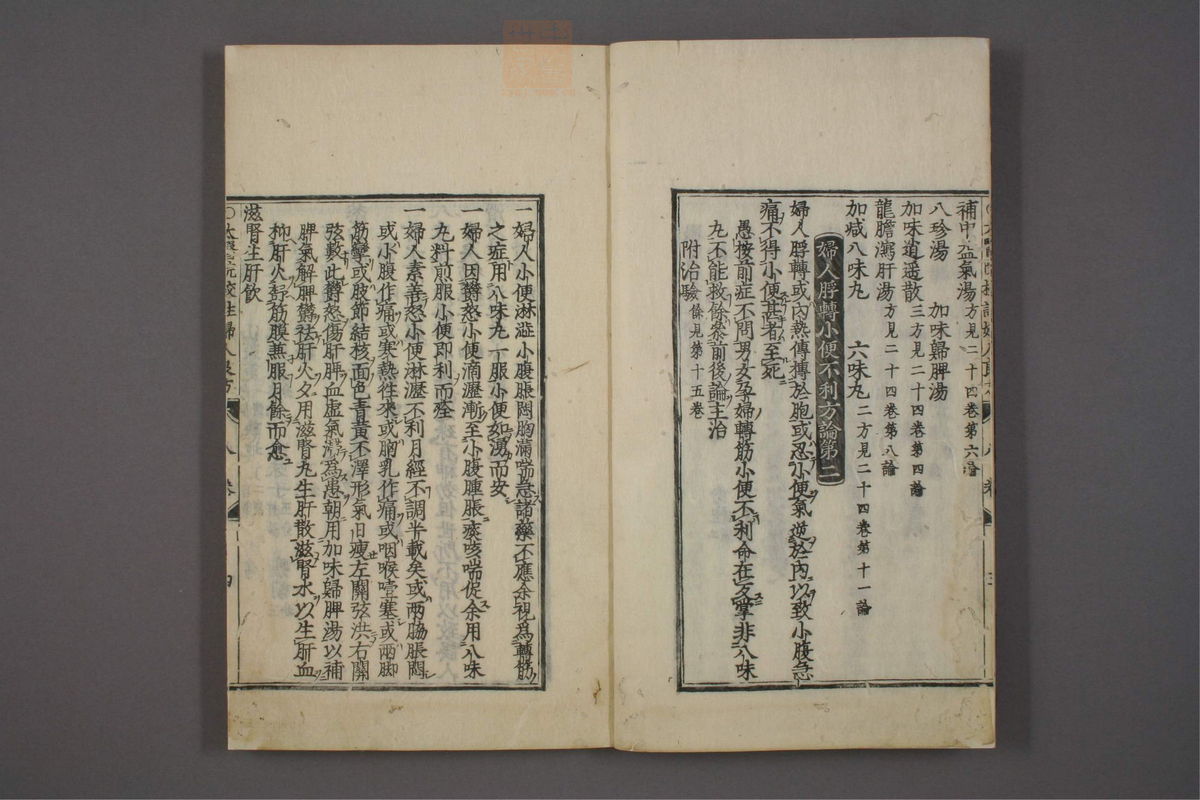 補中益氣湯方見二十四卷第六論
八珍湯　加味歸脾湯
加味逍遥散三方見二十四卷第四論
龍膽瀉肝湯方見二十四卷第八論
加减八味丸　六味丸二方見二十四卷第十一論
婦人脬轉小便不利方論第二
婦人脬轉或内熱傳摶於胞或忍小便氣逆於内以致小腹急
痛不得小便甚者至死
愚按前症不問男女孕婦轉筋小便不利命在反掌非八味
丸不能救餘參前後論主治
附治驗餘見第十五卷
一婦人小便淋澁小腹脹悶胸滿喘急諸藥不應余視爲轉筋
之症用八味丸一服小便如湧而安
一婦人因欝怒小便滴瀝漸至小腹腫脹痰咳喘促余用八味
丸料煎服小便即利而痊
一婦人素善怒小便淋瀝不利月經不調半載矣或兩脇脹悶
或小腹作痛或寒熱徃來或胸乳作痛或咽喉噎塞或兩脚
筋攣或肢節結核面色青黄不澤形氣日瘦左關弦洪右關
弦數此欝怒傷肝脾血虚氣滯爲患朝用加味歸脾湯以補
脾氣解脾欝祛肝火夕用滋腎丸生肝散滋腎水以生肝血
抑肝火舒筋膜兼服月餘而愈
滋腎生肝飲
八卷
四